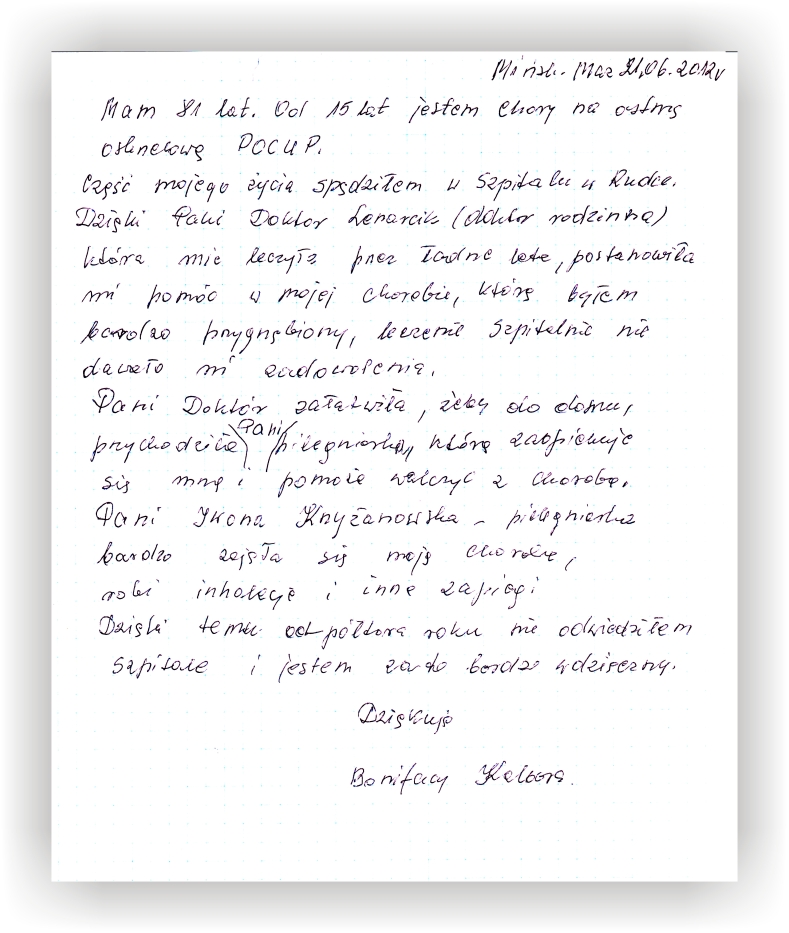 Mińsk. Maz 21.06.2012r
Mam 81 lat. Od 15 lat jestem chory na ostrą
POCUP.
Część mojego życia spędziłem w Szpitalu w Rudce.
Dzięki Pani Doktor Lenarcik (doktór rodzinna)
która mie leczyła przez ładne lata, postanowiła
mi pomóc w mojej chorobie, którą byłem
bardzo przygnębiony, leczenie Szpitalnie nie
dawało mi zadowolenia.
Pani Doktór załatwiła, żeby do domu,
przychodziła Pani pielęgniarka, którą zaopiekuje
się mną i pomoże walczyć z chorobą.
Pani Iwona Knyżanowska - pielęgniarka
bardzo zajęła się moją chorobą,
robi inhalacje i inne zapiegi
Dzięki temu od półtora roku nie odwiedziłem
Szpitale i jestem za to bardzo wdzięczny.
Dziękuję
Bonifacy